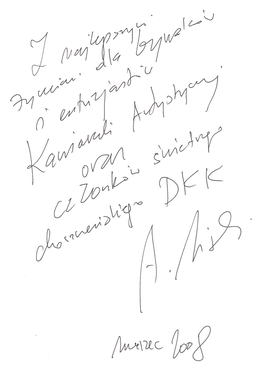 Z najlepszymi
życzeniami dla bywalców
i entuzjastów
Kawiarenki Artystycznej
oraz
członków świetnego
choszczeńskiego DKK
A.
marzec 2008